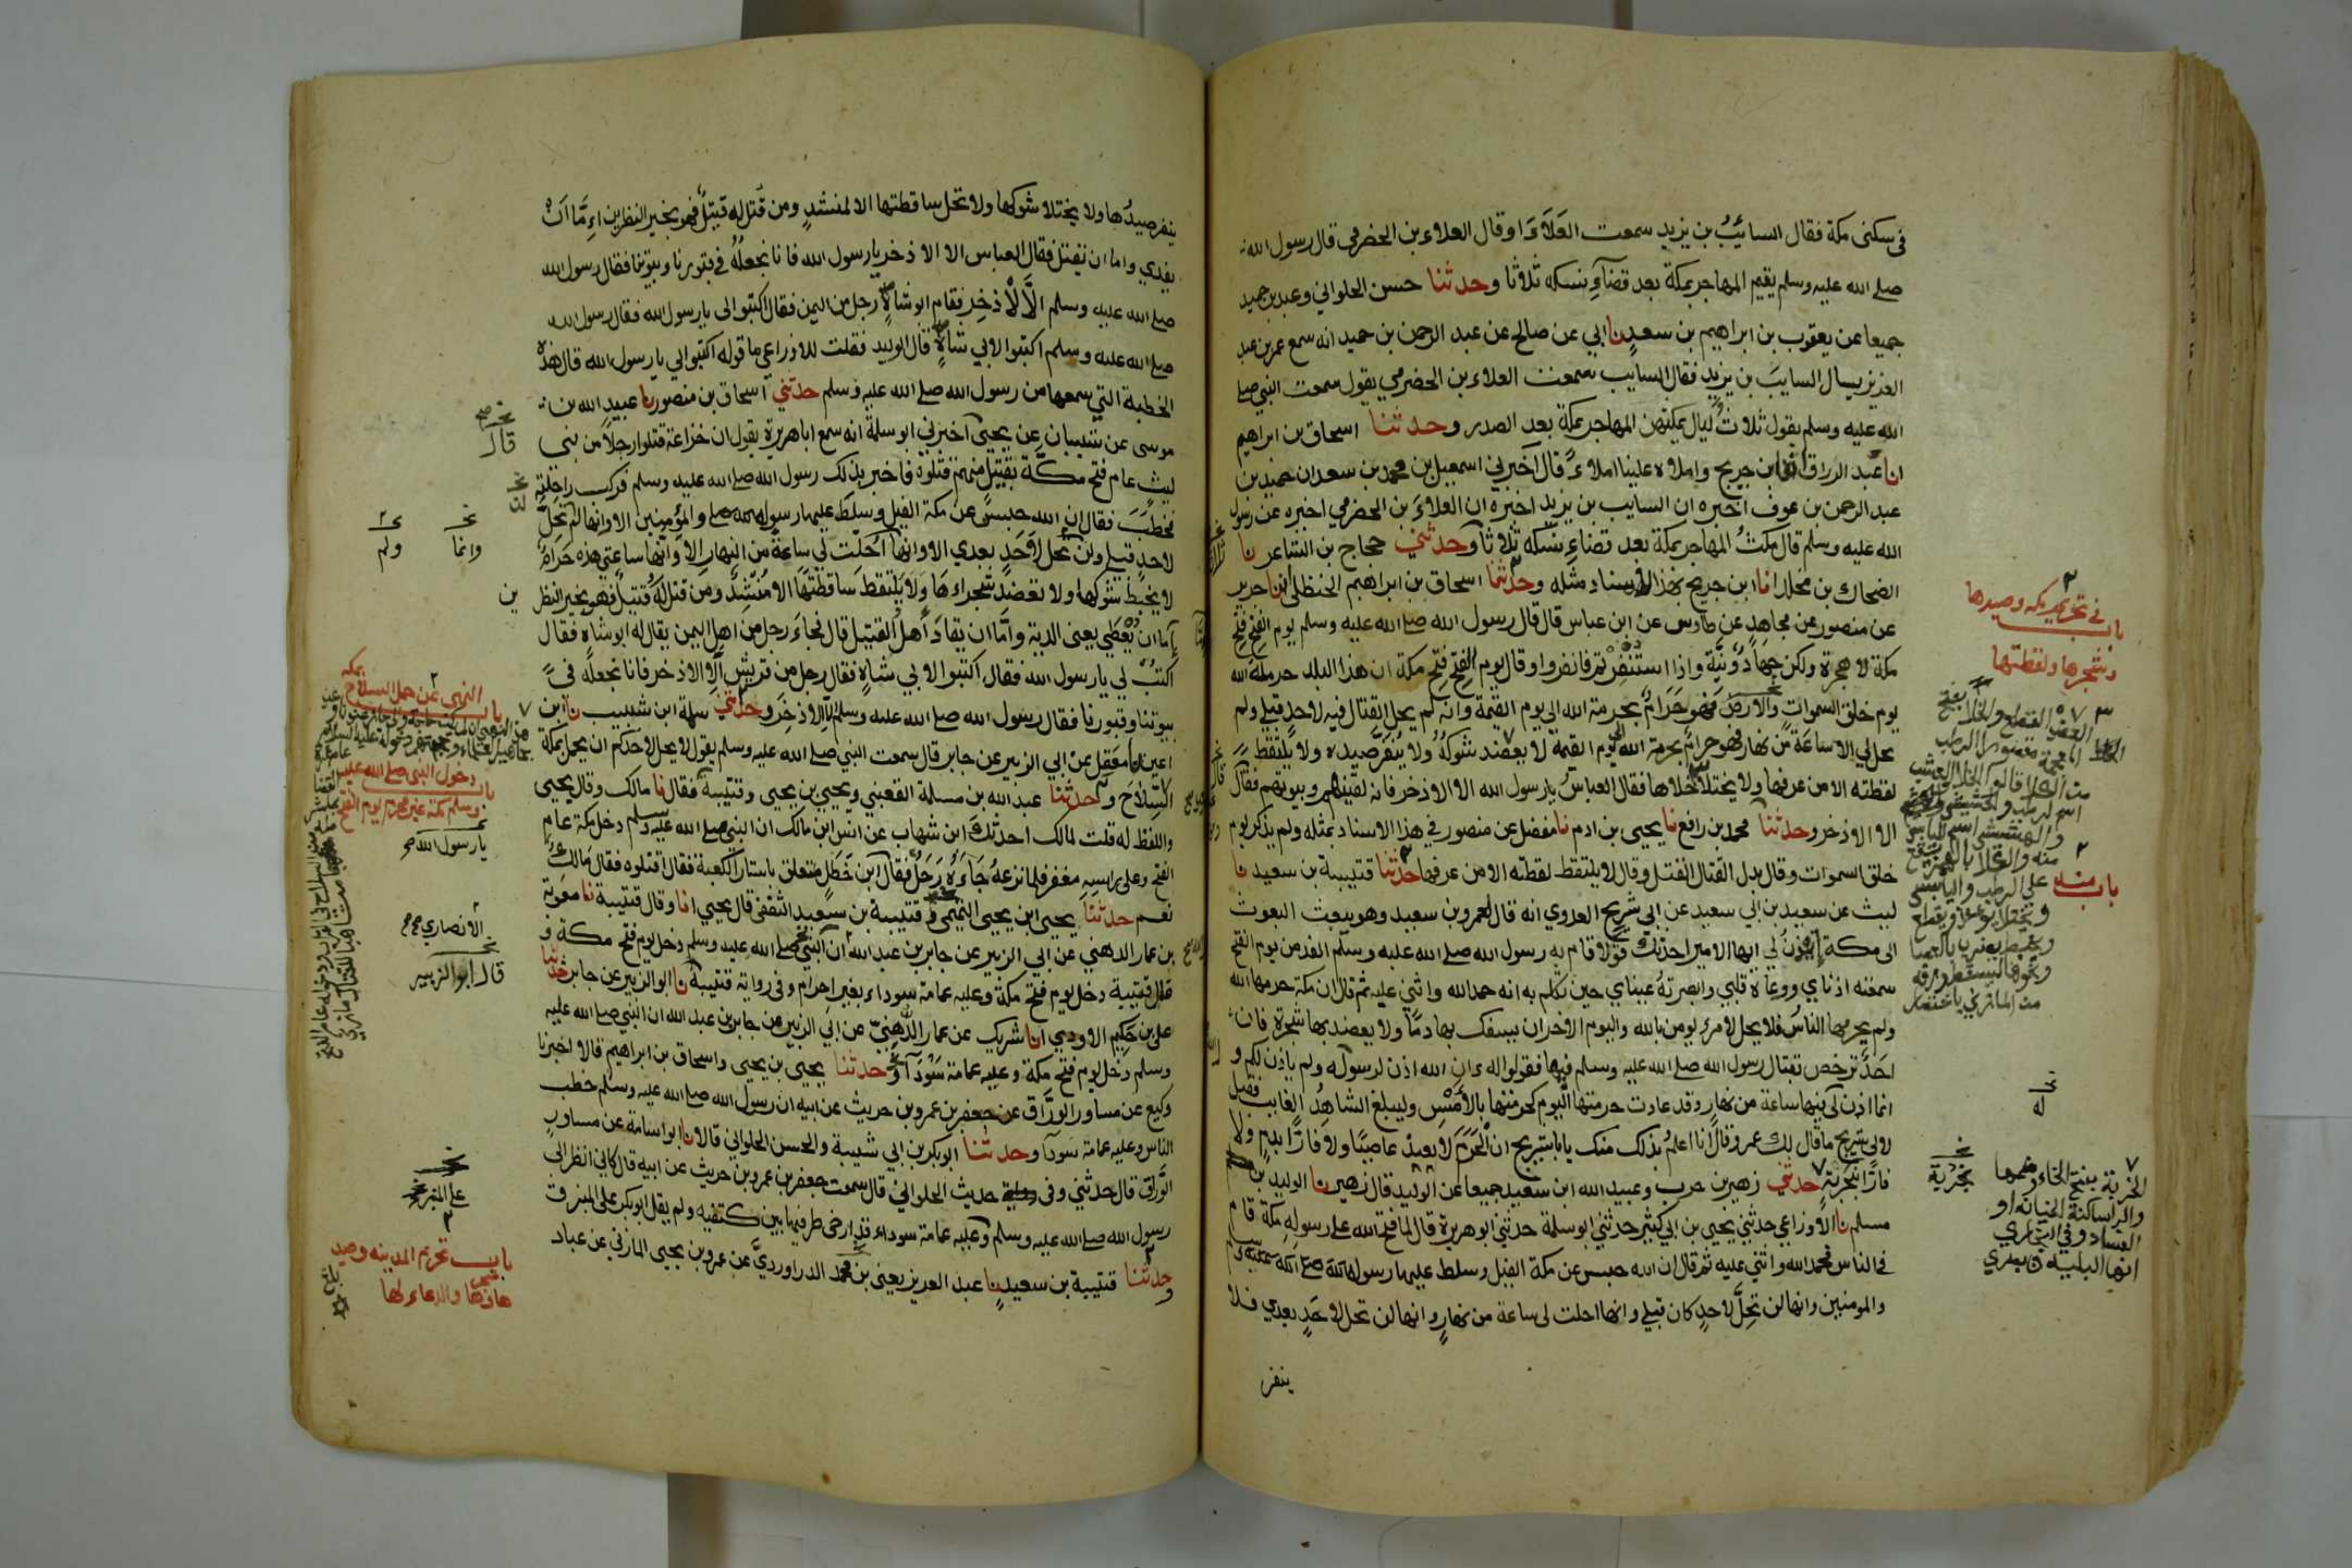 في سكنى مكة فقال السائب بن يزيد سمعت العلاء او قال العلاء بن الحضرمي قال رسول الله
صلى الله عليه وسلم يقيم المهاجر بمكة بعد قضآء نسكه ثلاثا وحدثنا حسن الحلواني وعبد بن حميد
جميعا عن يعقوب بن ابراهيم بن سعد نا ابي عن صالح عن عبد الرحمن بن حميد انه سمع عمر بن عبد
العزيز يسال السايب بن يزيد فقال السايب سمعت العلاء بن الحضرمي يقول سمعت النبي صلى
الله عليه وسلم يقول ثلاث ليال يمكثهن المهاجر بمكة بعد الصدر وحدثنا اسحاق بن ابراهيم
انا عبد الرزاق انا ابن جريج واملاه علينا املاء قال اخبرني اسمعيل بن محمد بن سعد ان حميد بن
عبد الرحمن بن عوف اخبره ان السايب بن يزيد اخبره ان العلاء بن الحضرمي اخبره عن رسول
الله عليه وسلم قال مكث المهاجر بمكة بعد قضاء نسكه ثلاثا وحدثني حجاج بن الشاعر نا
الضحاك بن مخلد انا ابن جريج بهذا الاسناد مثله وحدثنا اسحاق بن ابراهيم الحنظلي انا جرير
عن منصور عن مجاهد عن طاوس عن ابن عباس قال قال رسول الله صلى الله عليه وسلم يوم الفتح فتح
مكة لا هجرة ولكن جهاد ونية واذا استنفرتم فانفروا وقال يوم الفتح فتح مكة ان هذا البلد حرمه الله
يوم خلق السموات والارض فهو حرام بحرمة الله الى يوم القيمة وانه لم يحل القتال فيه لاحد قبلي ولم
يحل لي الا ساعة من نهار فهو حرام بحرمة الله الى يوم القيمة لا يعضد شوكه ولا ينفر صيده ولا يلتقط
لقطته الا من عرفها ولا يختلا خلاها فقال العباس يا رسول الله الا الاذخر فانه لقينهم وبيوتهم فقال
الا الاذخر وحدثنا محمد بن رافع نا يحيى بن ادم نا مفضل عن منصور في هذا الاسناد بمثله ولم يذكر يوم
خلق السموات وقال بدل القتال القتل وقال لا يلتقط لقطته الا من عرفها حدثنا قتيبة بن سعيد نا
ليث عن سعيد بن ابي سعيد عن ابي شريح العدوي انه قال لعمرو بن سعيد وهو يبعث البعوث
الى مكة ايذن لي ايها الامير احدثك قولا قام به رسول الله صلى الله عليه وسلم الغد من يوم الفتح
سمعته اذناي ووعاه قلبي وابصرته عيناي حين تكلم به انه حمد الله واثنى عليه ثم قال ان مكة حرمها الله
ولم يحرمها الناس فلا يحل لامرء يومن بالله واليوم الاخر ان يسفك بها دما ولا يعضد بها شجرة فان
احد ترخص بقتال رسول الله صلى الله عليه وسلم فيها فقولوا له ان الله اذن لرسوله ولم ياذن لكم و
انما اذن لي فيها ساعة من نهار وقد عادت حرمتها اليوم كحرمتها بالامس وليبلغ الشاهد الغايب فقيل
لابي شريح ما قال لك عمرو قال انا اعلم بذلك منك يا ابا شريح ان الحرم لا يعيذ عاصيا ولا فارا بدم ولا
فارا بخربة حدثني زهير بن حرب وعبيد الله ابن سعيد جميعا عن الوليد قال زهير نا الوليد بن
مسلم نا الاوزاعي حدثني يحيى بن ابي كثير حدثني ابو سلمة حدثني ابو هريرة قال لما فتح الله على رسوله مكة قام
في الناس فحمد الله واثنى عليه ثم قال ان الله حبس عن مكة الفيل وسلط عليها رسوله
والمومنين وانها لن تحل لاحد كان قبلي وانها احلت لي ساعة من نهار وانها لن تحل لاحد بعدي فلا
ينفر
باب في تحريم مكه وصيدها
وشجرها ولقطتها
باب منه
نخـ
له
نخـ
بخزية
الخربة بفتح الخاء وضمها
والراء ساكنة الخيانة او
الفساد وفي البخاري
انها البلية
ينفر صيدها ولا يختلا شوكها ولا تحل ساقطتها الا لمنشد ومن قتل له قتيل فهو بخير النظرين اما ان
يفدي واما ان يقتل فقال العباس الا الاذخر يا رسول الله فانا نجعله في قبورنا وبيوتنا فقال رسول الله
صلى الله عليه وسلم الا الاذخر فقام ابو شاه رجل من اليمن فقال اكتبوا لي يا رسول الله فقال رسول الله
صلى الله عليه وسلم اكتبوا لابي شاه قال الوليد فقلت للاوزاعي ما قوله اكتبوا لي يا رسول الله قال هذه
الخطبة التي سمعها من رسول الله صلى الله عليه وسلم حدثني اسحاق بن منصور نا عبيد الله بن
موسى عن شيبان عن يحيى اخبرني ابو سلمة انه سمع ابا هريرة يقول ان خزاعة قتلوا رجلا من بني
ليث عام فتح مكة بقتيل منهم قتلوه فاخبر بذلك رسول الله صلى الله عليه وسلم فركب راحلته
فخطب فقال ان الله حبس عن مكة الفيل وسلط عليها رسوله والمؤمنين الا وانها لم تحل
لاحد قبلي ولن تحل لاحد بعدي الا وانها احلت لي ساعة من النهار الا وانها ساعتي هذه حرام
لا يخبط شوكها ولا يعضد شجراءها ولا يلتقط ساقطتها الا منشد ومن قتل له قتيل فهو بخير النظر
اما ان يعطى يعني الدية واما ان يقاد اهل القتيل قال فجاء رجل من اهل اليمن يقال له ابو شاه فقال
اكتب لي يا رسول الله فقال اكتبوا لابي شاه فقال رجل من قريش الا الاذخر فانا نجعله في
بيوتنا وقبورنا فقال رسول الله صلى الله عليه وسلم الا الاذخر وحدثني سلمة ابن شبيب نا ابن
اعين نا معقل عن ابي الزبير عن جابر قال سمعت النبي صلى الله عليه وسلم يقول لا يحل لاحدكم ان يحمل بمكة
السلاح وحدثنا عبد الله بن مسلمة القعنبي ويحيى بن يحيى وقتيبة فقال نا مالك وقال يحيى
واللفظ له قلت لمالك احدثك ابن شهاب عن انس ابن مالك ان النبي صلى الله عليه وسلم دخل مكة عام
الفتح وعلى راسه مغفر فلما نزعه جاءه رجل فقال ابن خطل متعلق باستار الكعبة فقال اقتلوه فقال مالك
نعم حدثنا يحيى ابن يحيى التميمي وقتيبة بن سعيد الثقفي قال يحيى انا وقال قتيبة نا معوية
بن عمار الدهني عن ابي الزبير عن جابر بن عبد الله ان النبي صلى الله عليه وسلم دخل يوم فتح مكة و
قال قتيبة دخل يوم فتح مكة وعليه عمامة سوداء بغير احرام وفي رواية قتيبة نا ابو الزبير عن جابر حدثنا
علي بن حكيم الاودي انا شريك عن عمار الدهني عن ابي الزبير عن جابر بن عبد الله ان النبي صلى الله عليه
وسلم دخل يوم فتح مكة وعليه عمامة سودآ وحدثنا يحيى بن يحيى واسحاق بن ابراهيم قالا اخبرنا
وكيع عن مساور الوراق عن جعفر بن عمرو بن حريث عن ابيه ان رسول الله صلى الله عليه وسلم خطب
الناس وعليه عمامة سودآ وحدثنا ابو بكر بن ابي شيبة والحسن الحلواني قالا نا ابو اسامة عن مساور
الوراق قال حدثني وفي رواية حديث الحلواني قال سمعت جعفر بن عمرو بن حريث عن ابيه قال كاني انظر الى
رسول الله صلى الله عليه وسلم وعليه عمامة سوداء قد ارخى طرفيها بين كتفيه ولم يقل ابو بكر على المنبر
وحدثنا قتيبة بن سعيد نا عبد العزيز يعني بن محمد الدراوردي عن عمرو بن يحيى المازني عن عباد
قال
نخـ
وانما
نخـ
ولم
ين
باب النهي عن حمل السلاح بمكه
باب دخول النبي صلى الله عليه
وسلم مكة غير محرم يوم الفتح
يا رسول الله
الانصاري
قال ابو الزبير
على المنبر
باب تحريم المدينه وصيد
هاوشجرها والدعاء لها